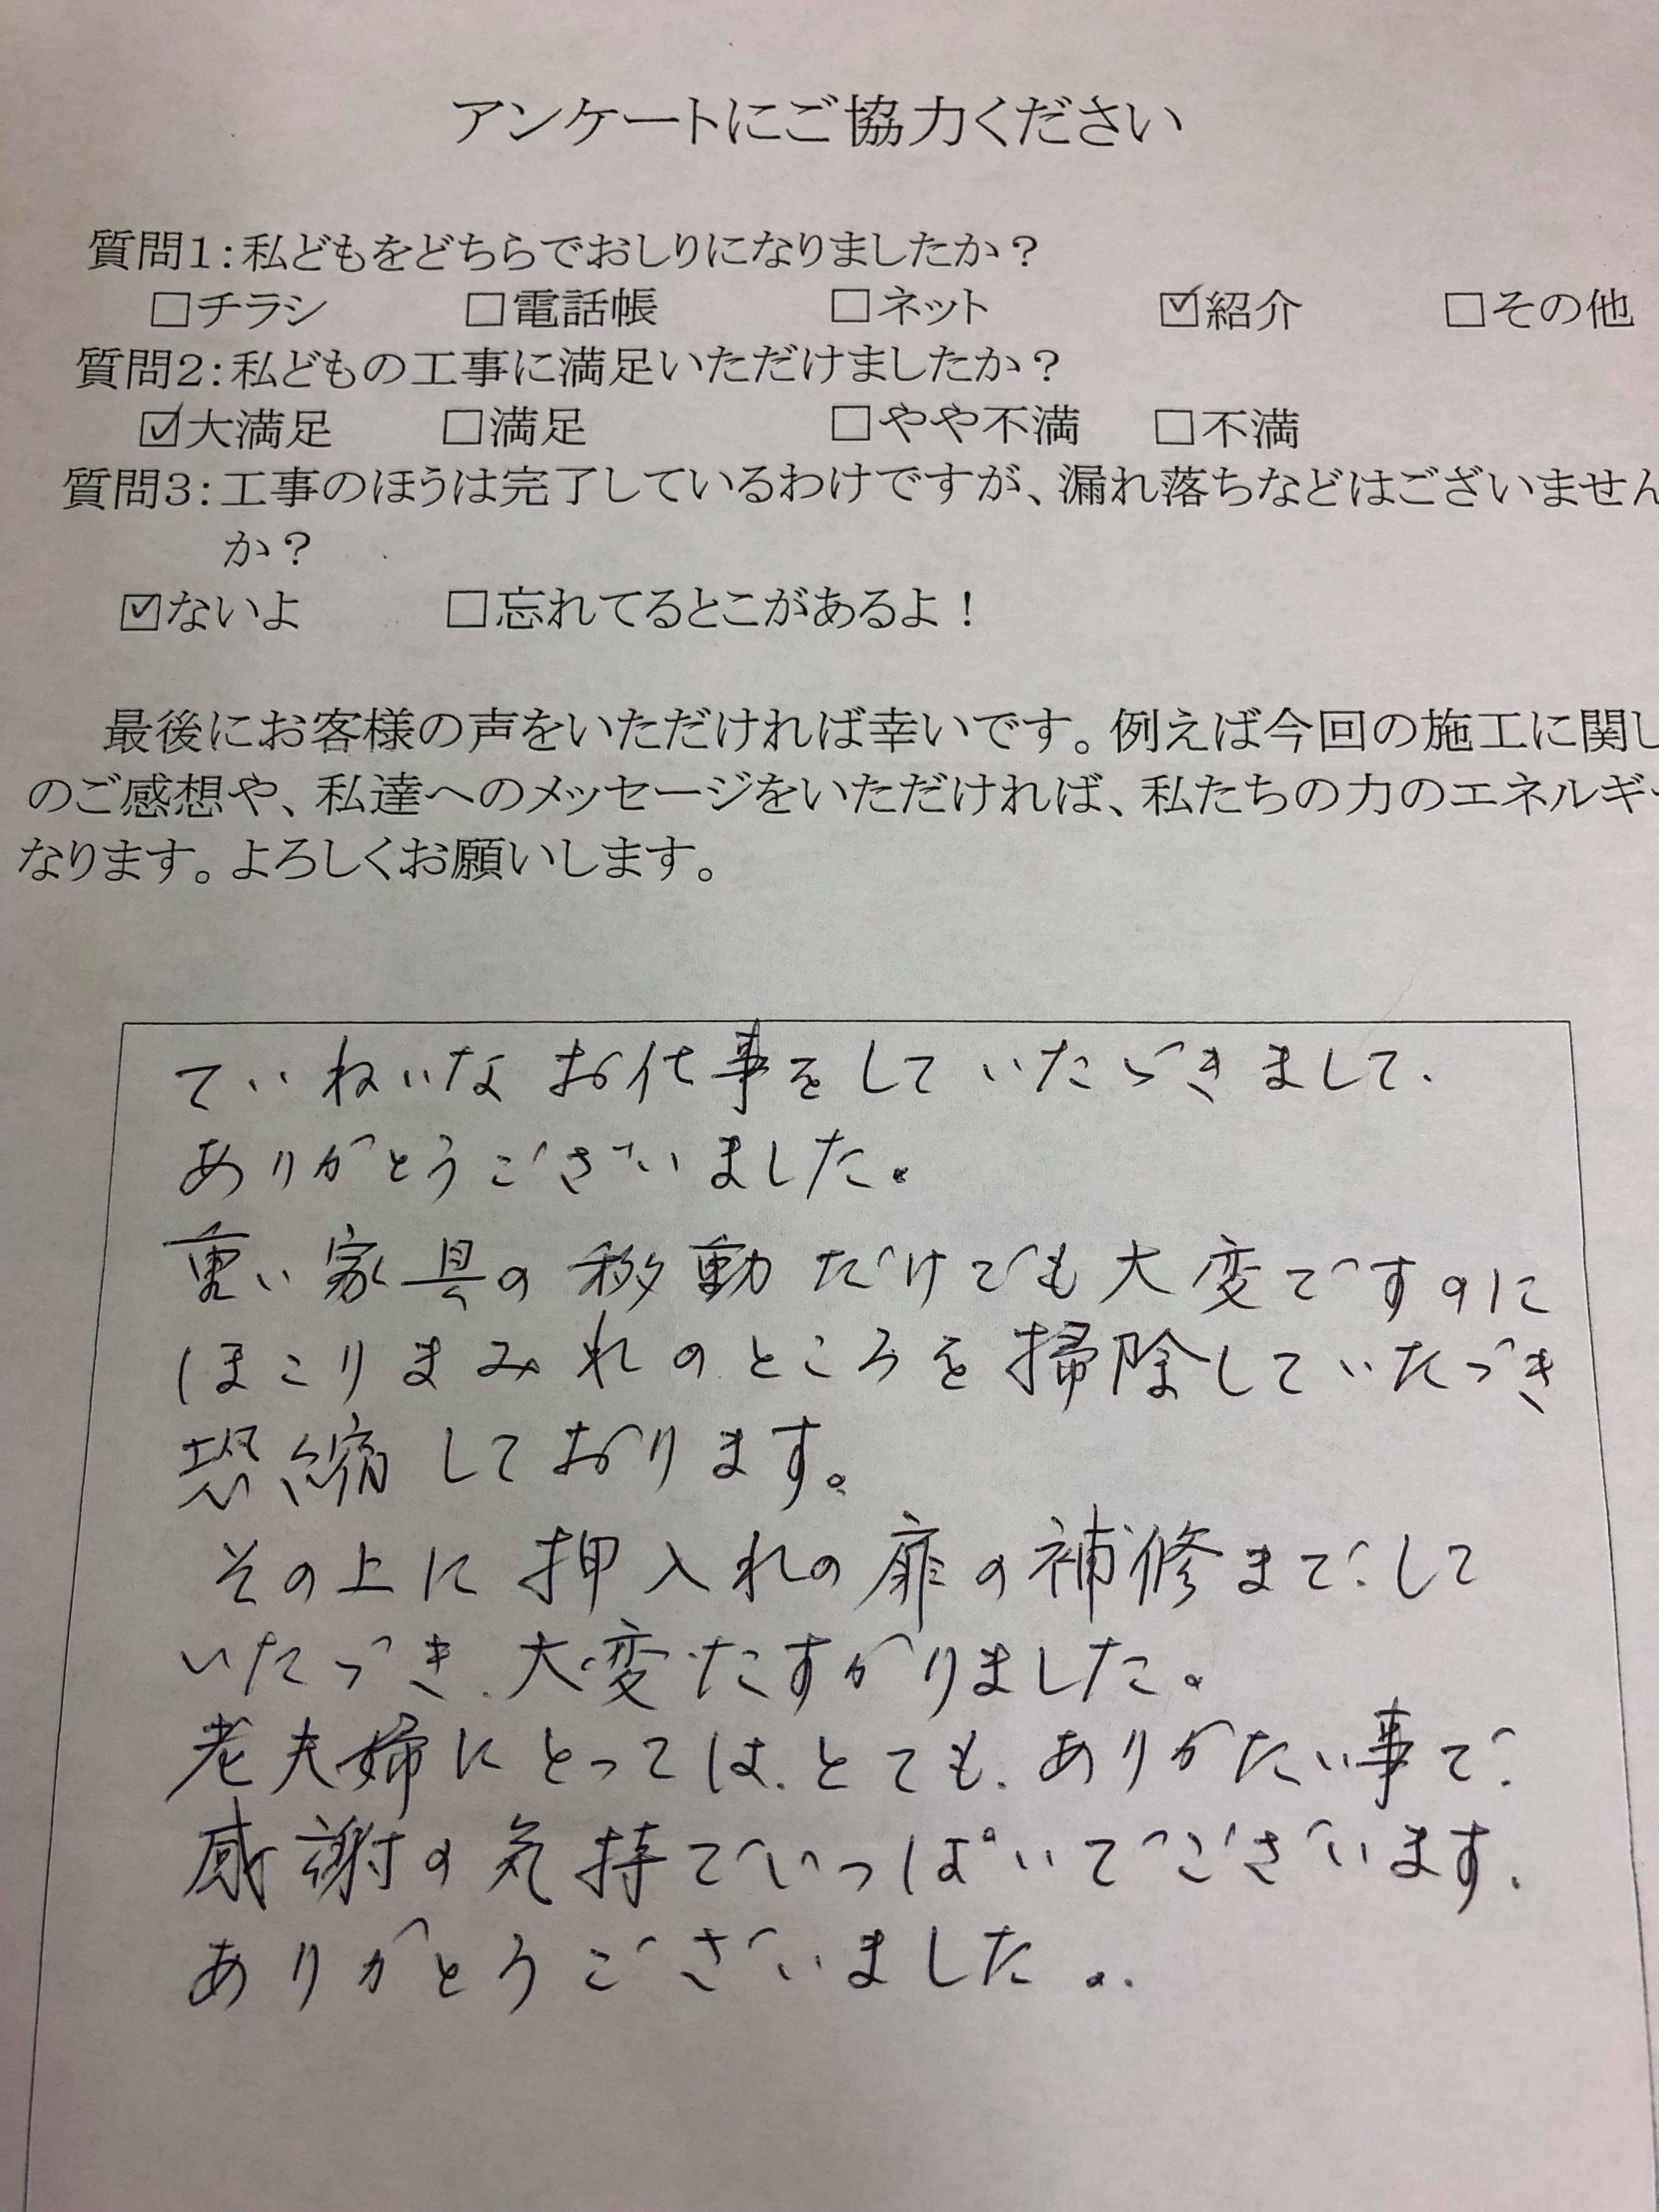 アンケートにご協力ください
質問1：私どもをどちらでおしりになりましたか？
□チラシ □電話帳 □ネット ☑紹介 □その他
質問2：私どもの工事に満足いただけましたか？
☑大満足 □満足 □やや不満 □不満
質問3：工事のほうは完了しているわけですが、漏れ落ちなどはございません
か？
☑ないよ □忘れてるとこがあるよ！
最後にお客様の声をいただければ幸いです。例えば今回の施工に関し
のご感想や、私達へのメッセージをいただければ、私たちの力のエネルギー
なります。よろしくお願いします。
ていねいなお仕事をしていたゞきまして、
ありがとうございました。
重い家具の移動だけでも大変ですのに
ほこりまみれのところを掃除していたゞき
恐縮しております。
その上に押入れの扉の補修までして
いたゞき、大変たすかりました。
老夫婦にとっては、とても、ありがたい事で
感謝の気持でいっぱいでございます、
ありがとうございました。